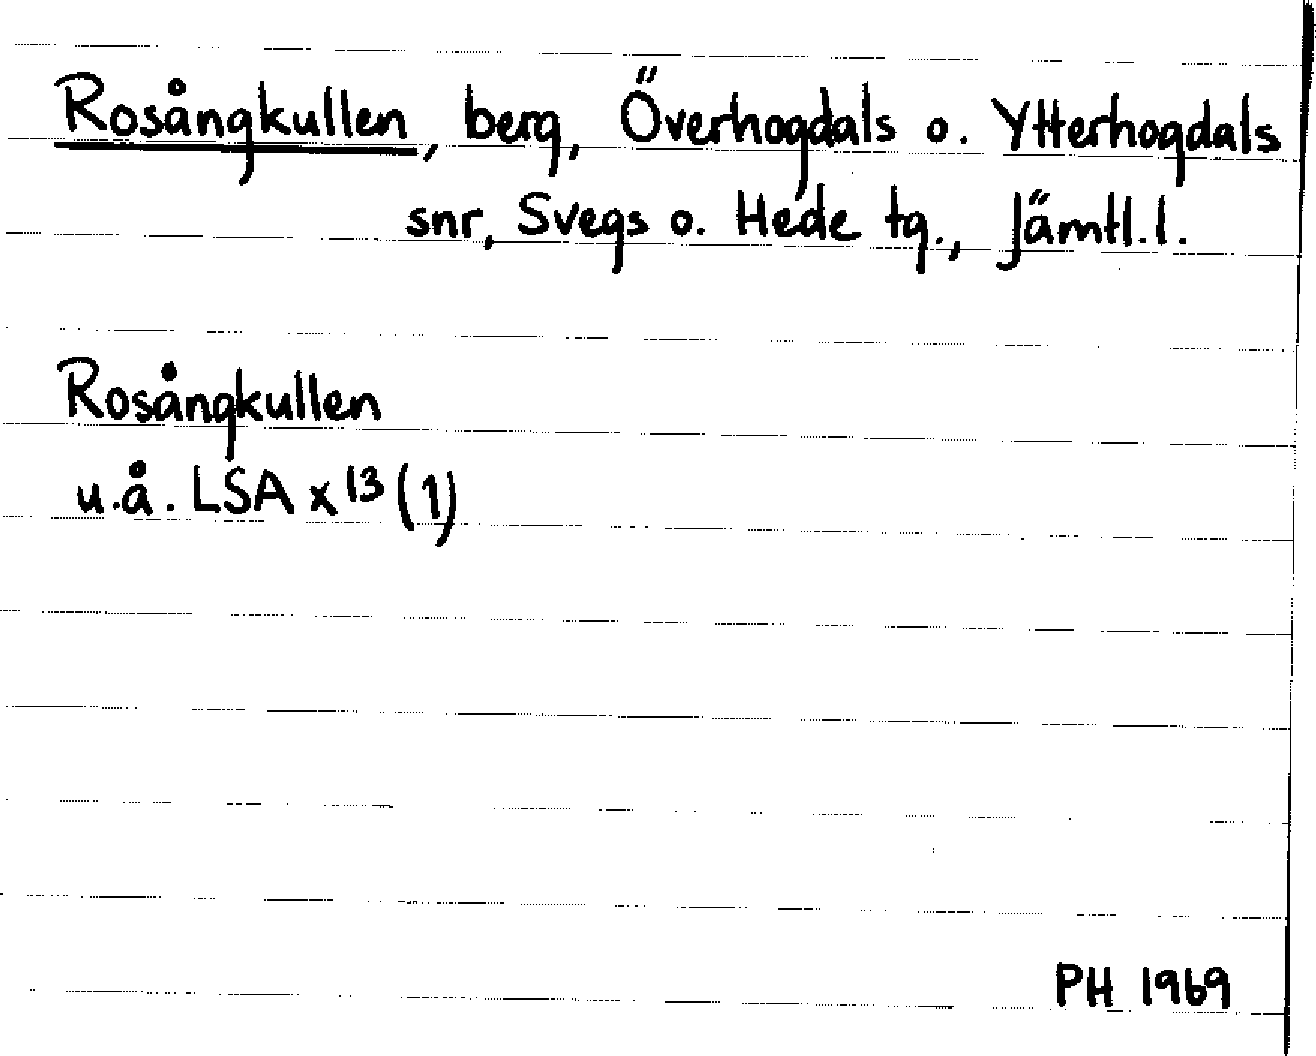 Rosångkullen, berg, Överhogdals o. Ytterhogdals
snr, Svegs o. Hede tg., Jämtl.l.
Rosångkullen
u.å. LSA x¹³ (1)
PH 1969